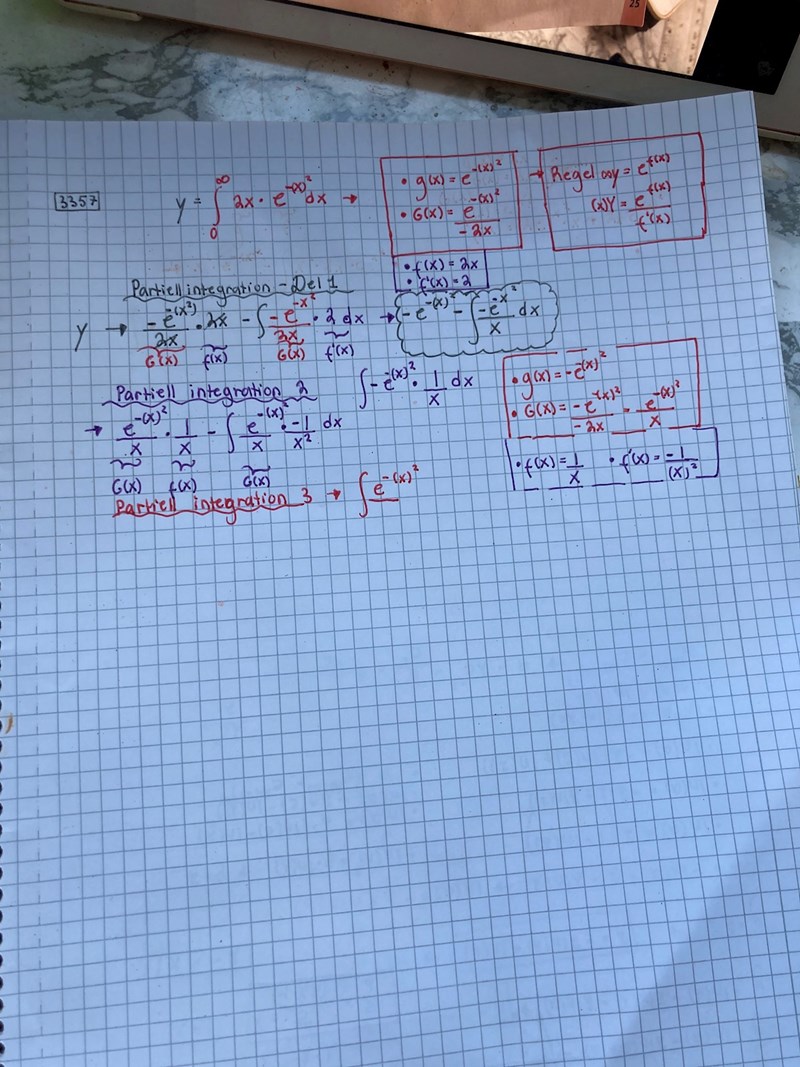 25
3357
y = ∫₀^∞ 2x · e^-(x)² dx →
• g(x) = e^-(x)²
• G(x) = e^-(x)² / -2x
→ Regel om y = e^f(x)
(x)Y = e^f(x) / f'(x)
• f(x) = 2x
• f'(x) = 2
Partiell integration - Del 1
y → -e^-(x²) / 2x · 2x - ∫ -e^-x² / 2x · 2 dx → -e^-(x)² - ∫ -e^-x² / x dx
G(x) f(x) G(x) f'(x)
Partiell integration 2 ∫ -e^-(x)² · 1/x dx
• g(x) = -e^-(x)²
• G(x) = -e^-(x)² / -2x = e^-(x)² / x
→ e^-(x)² / x · 1/x - ∫ e^-(x)² / x · -1/x² dx
G(x) f(x) G(x)
• f(x) = 1/x • f'(x) = -1/(x)²
Partiell integration 3 → ∫ e^-(x)²